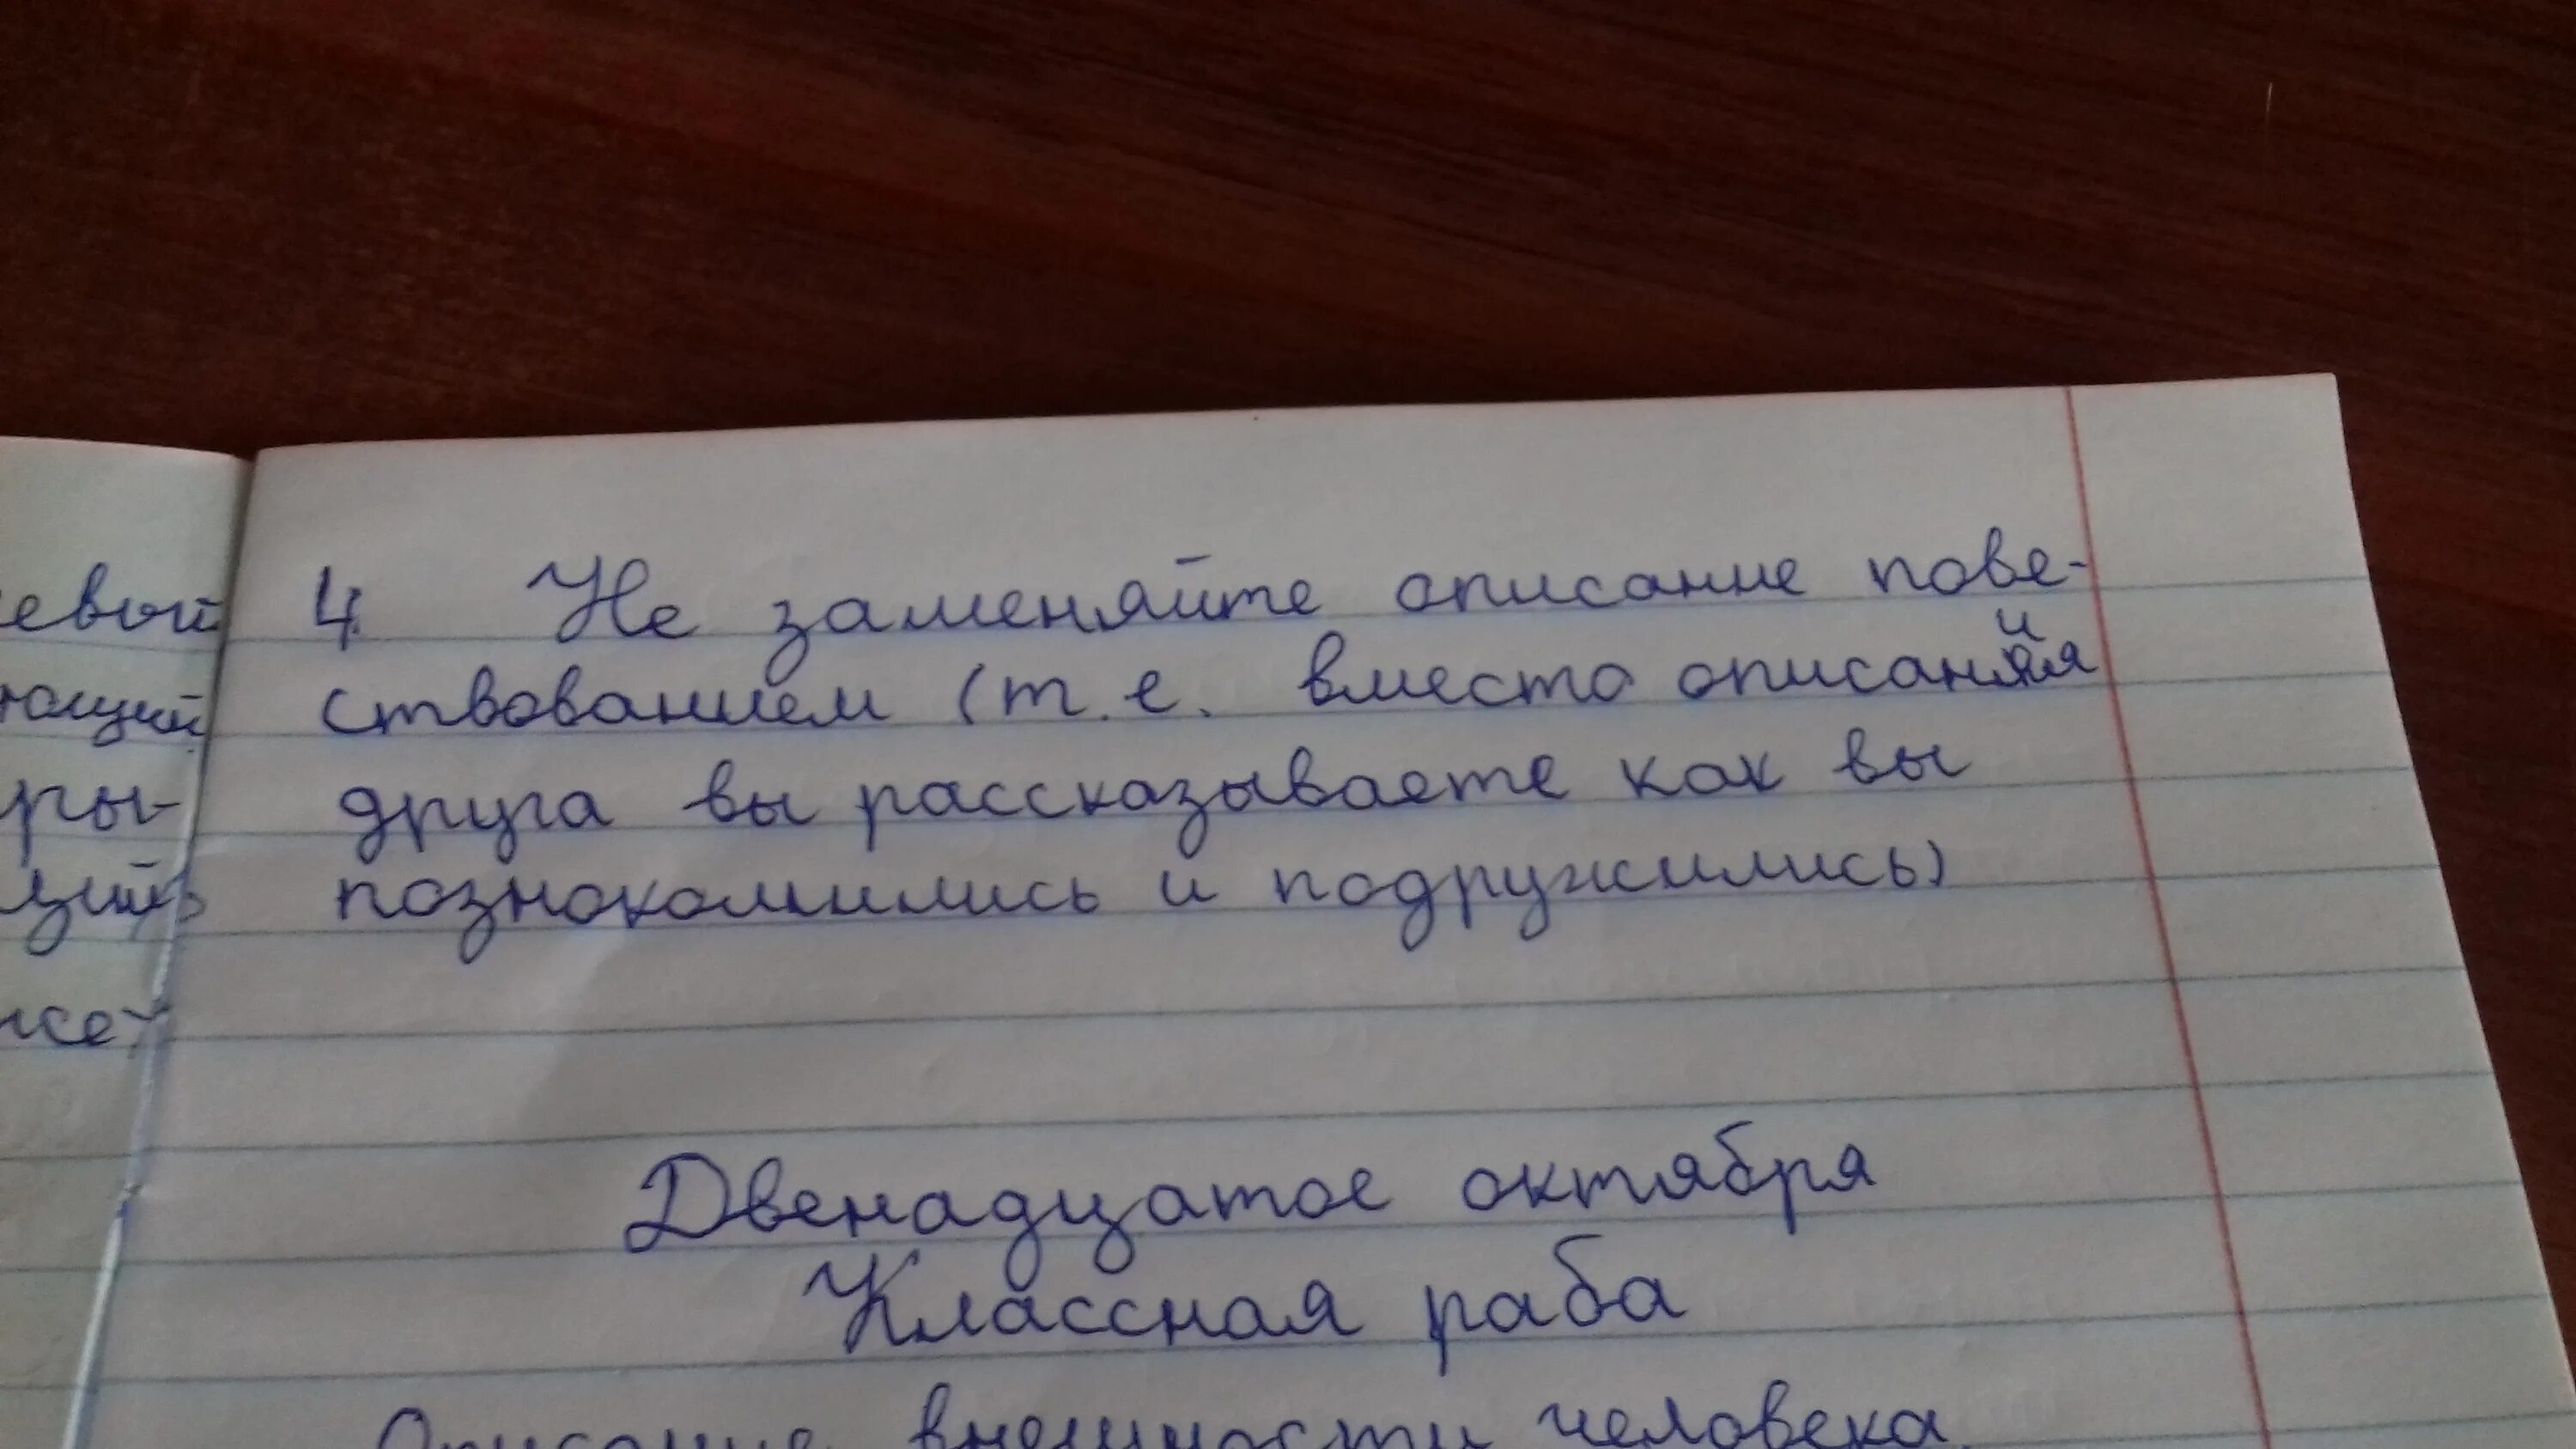 4. Не заменяйте описание пове-
ствованием (т.е. вместо описания
друга вы рассказываете как вы
познокомились и подружились)
Двенадцатое октября
Классная раба
Описание внешности человека.